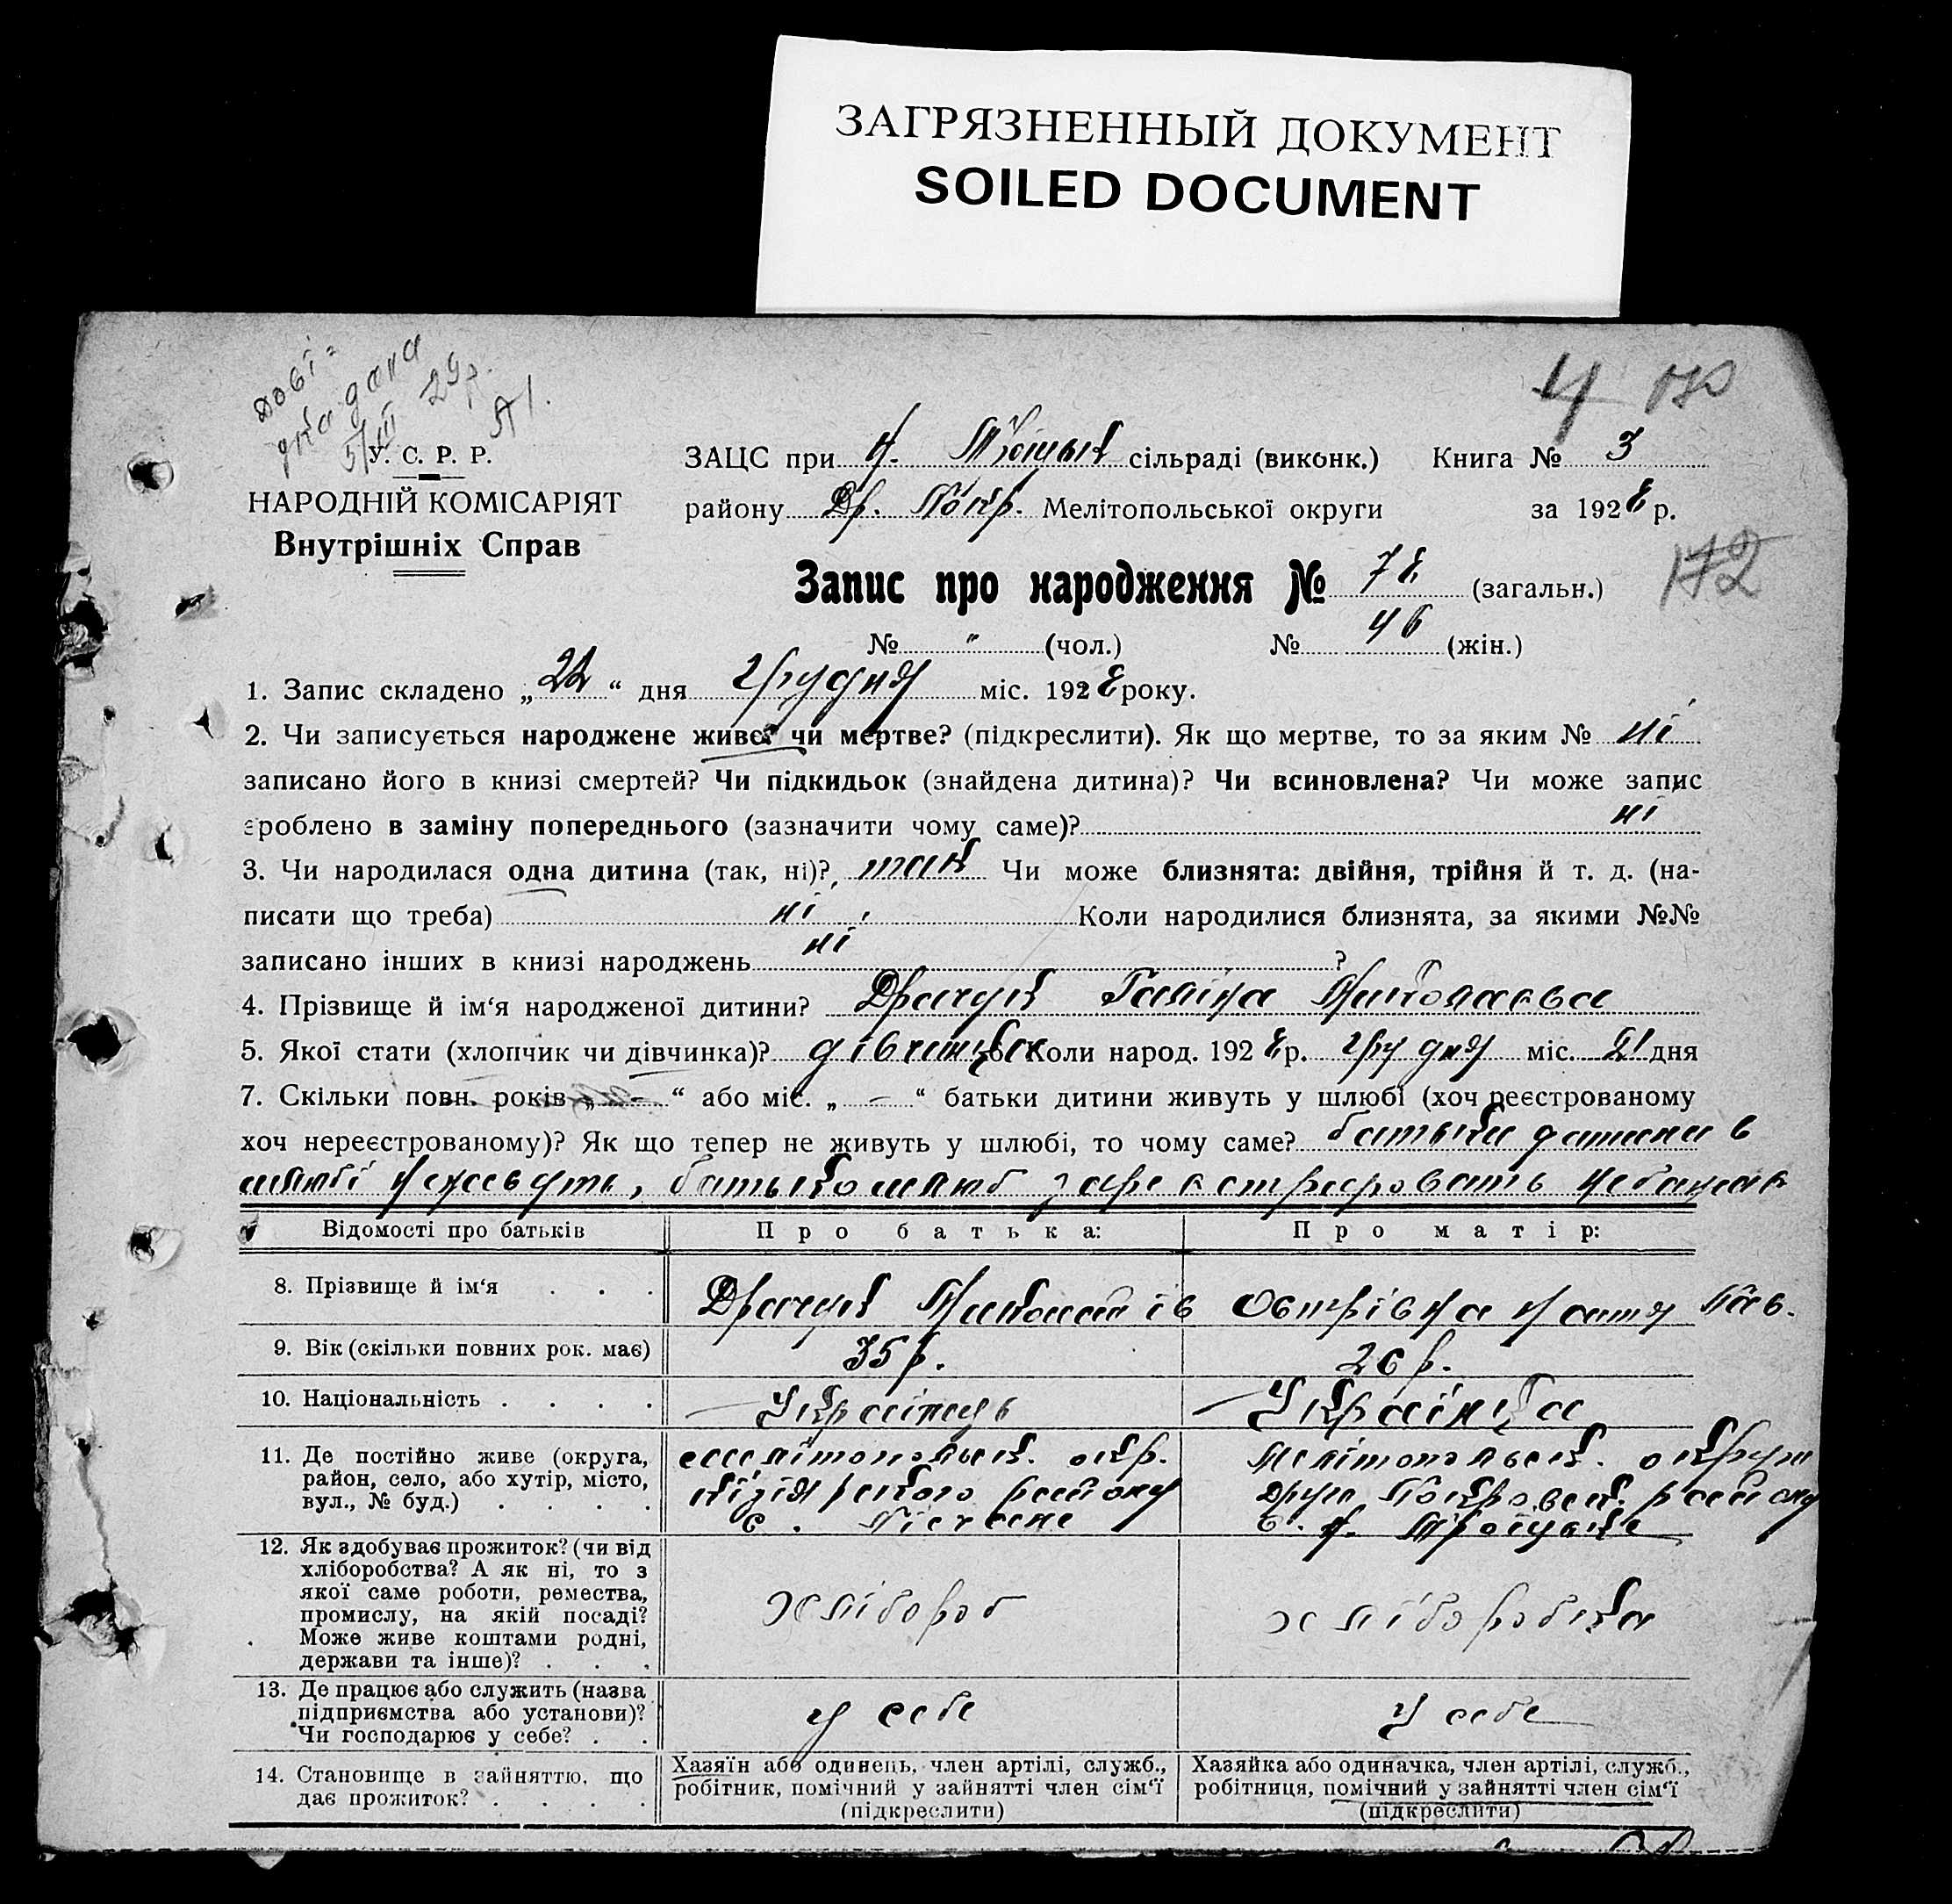 ЗАГРЯЗНЕННЫЙ ДОКУМЕНТ
SOILED DOCUMENT
4
дана
У. С. Р. Р.
НАРОДНІЙ КОМІСАРІЯТ
Внутрішніх Справ
ЗАЦС при Н. сільраді (виконк.) Книга № 3
району Др. Покр. Мелітопольської округи за 1928 р.
172
Запис про народження № 78 (загальн.)
№ " (чол.) № 46 (жін.)
1. Запис складено „22“ дня грудня міс. 1928 року.
2. Чи записується народжене живе чи мертве? (підкреслити). Як що мертве, то за яким № ні
записано його в книзі смертей? Чи підкидьок (знайдена дитина)? Чи всиновлена? Чи може запис
зроблено в заміну попереднього (зазначити чому саме)? ні
3. Чи народилася одна дитина (так, ні)? так Чи може близнята: двійня, трійня й т. д. (на-
писати що треба) ні Коли народилися близнята, за якими №№
записано інших в книзі народжень ні ?
4. Прізвище й ім‘я народженої дитини? Драчук Галіна Миколаєва
5. Якої стати (хлопчик чи дівчинка)? дівчинка Коли народ. 1928 р. грудня міс. 21 дня
7. Скільки повн. років „ – “ або міс. „ – “ батьки дитини живуть у шлюбі (хоч реєстрованому
хоч нереєстрованому)? Як що тепер не живуть у шлюбі, то чому саме? батьки дитини в
шлюбі не живуть, батько шлюб
Відомості про батьків Про батька: Про матір:
8. Прізвище й ім‘я . . . Драчук Острівна Настя Пав.
9. Вік (скільки повних рок. має) 35 р. 26 р.
10. Національність . . . . Українець Українка
11. Де постійно живе (округа, мелітопольск. окр. Мелітопольск. округи
район, село, або хутір, місто, району Друго Покровськ. району
вул., № буд.) . . . . с. Пісчане с. Н. Троіцьке
12. Як здобуває прожиток? (чи від
хліборобства? А як ні, то з
якої саме роботи, ремества, хлібороб хліборобка
промислу, на якій посаді?
Може живе коштами родні,
держави та інше)? . . .
13. Де працює або служить (назва
підприємства або установи)? у себе у себе
Чи господарює у себе? . .
14. Становище в зайняттю, що
дає прожиток? . . . .
Хазяїн або одинець, член артілі, служб.,
робітник, помічний у зайнятті член сім‘ї
(підкреслити)
Хазяйка або одиначка, член артілі, служб.,
робітниця, помічний у зайнятті член сім‘ї
(підкреслити)